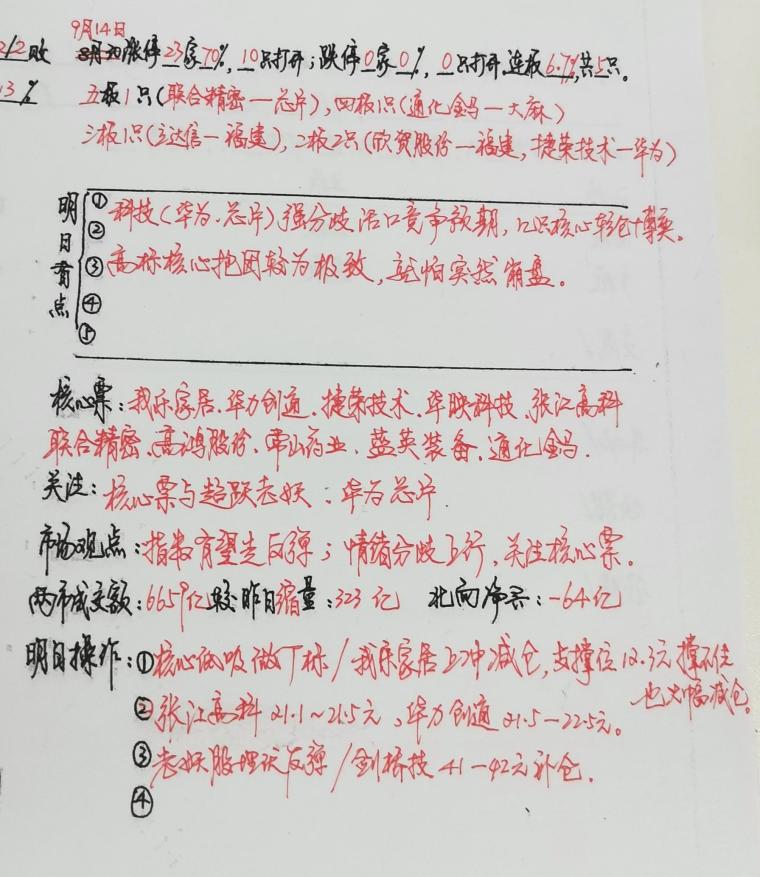 9月14日
2/2败 涨停23家70%, 10只打开; 跌停0家0%, 0只打开, 连板6.7%, 共5只。
13% 五板1只(联合精密—芯片), 四板1只(通化金马—大麻)
三板1只(立达信—福建), 二板2只(欣贺股份—福建, 捷荣技术—华为)
明日看点
① 科技(华为、芯片)强分歧
② 竞争预期,
③ 高标核心抱团较为极致, 就怕突然崩盘。
④
⑤
核心票: 我乐家居、华力创通、捷荣技术、华映科技、张江高科
联合精密、高鸿股份、常山药业、蓝英装备、通化金马.
关注: 核心票与超跌老妖、华为芯片
市场观点: 指数有望走反弹; 情绪分歧上行, 关注核心票。
两市成交额: 6659亿较昨日缩量: 323亿 北向净买: -64亿
明日操作: ①核心低吸做T标/我乐家居上冲减仓, 支撑位12.3元撑不住
也大幅减仓。
②张江高科21.1~21.5元、华力创通21.5—22.5元。
③老妖股埋伏反弹/剑桥技41—42元补仓.
④